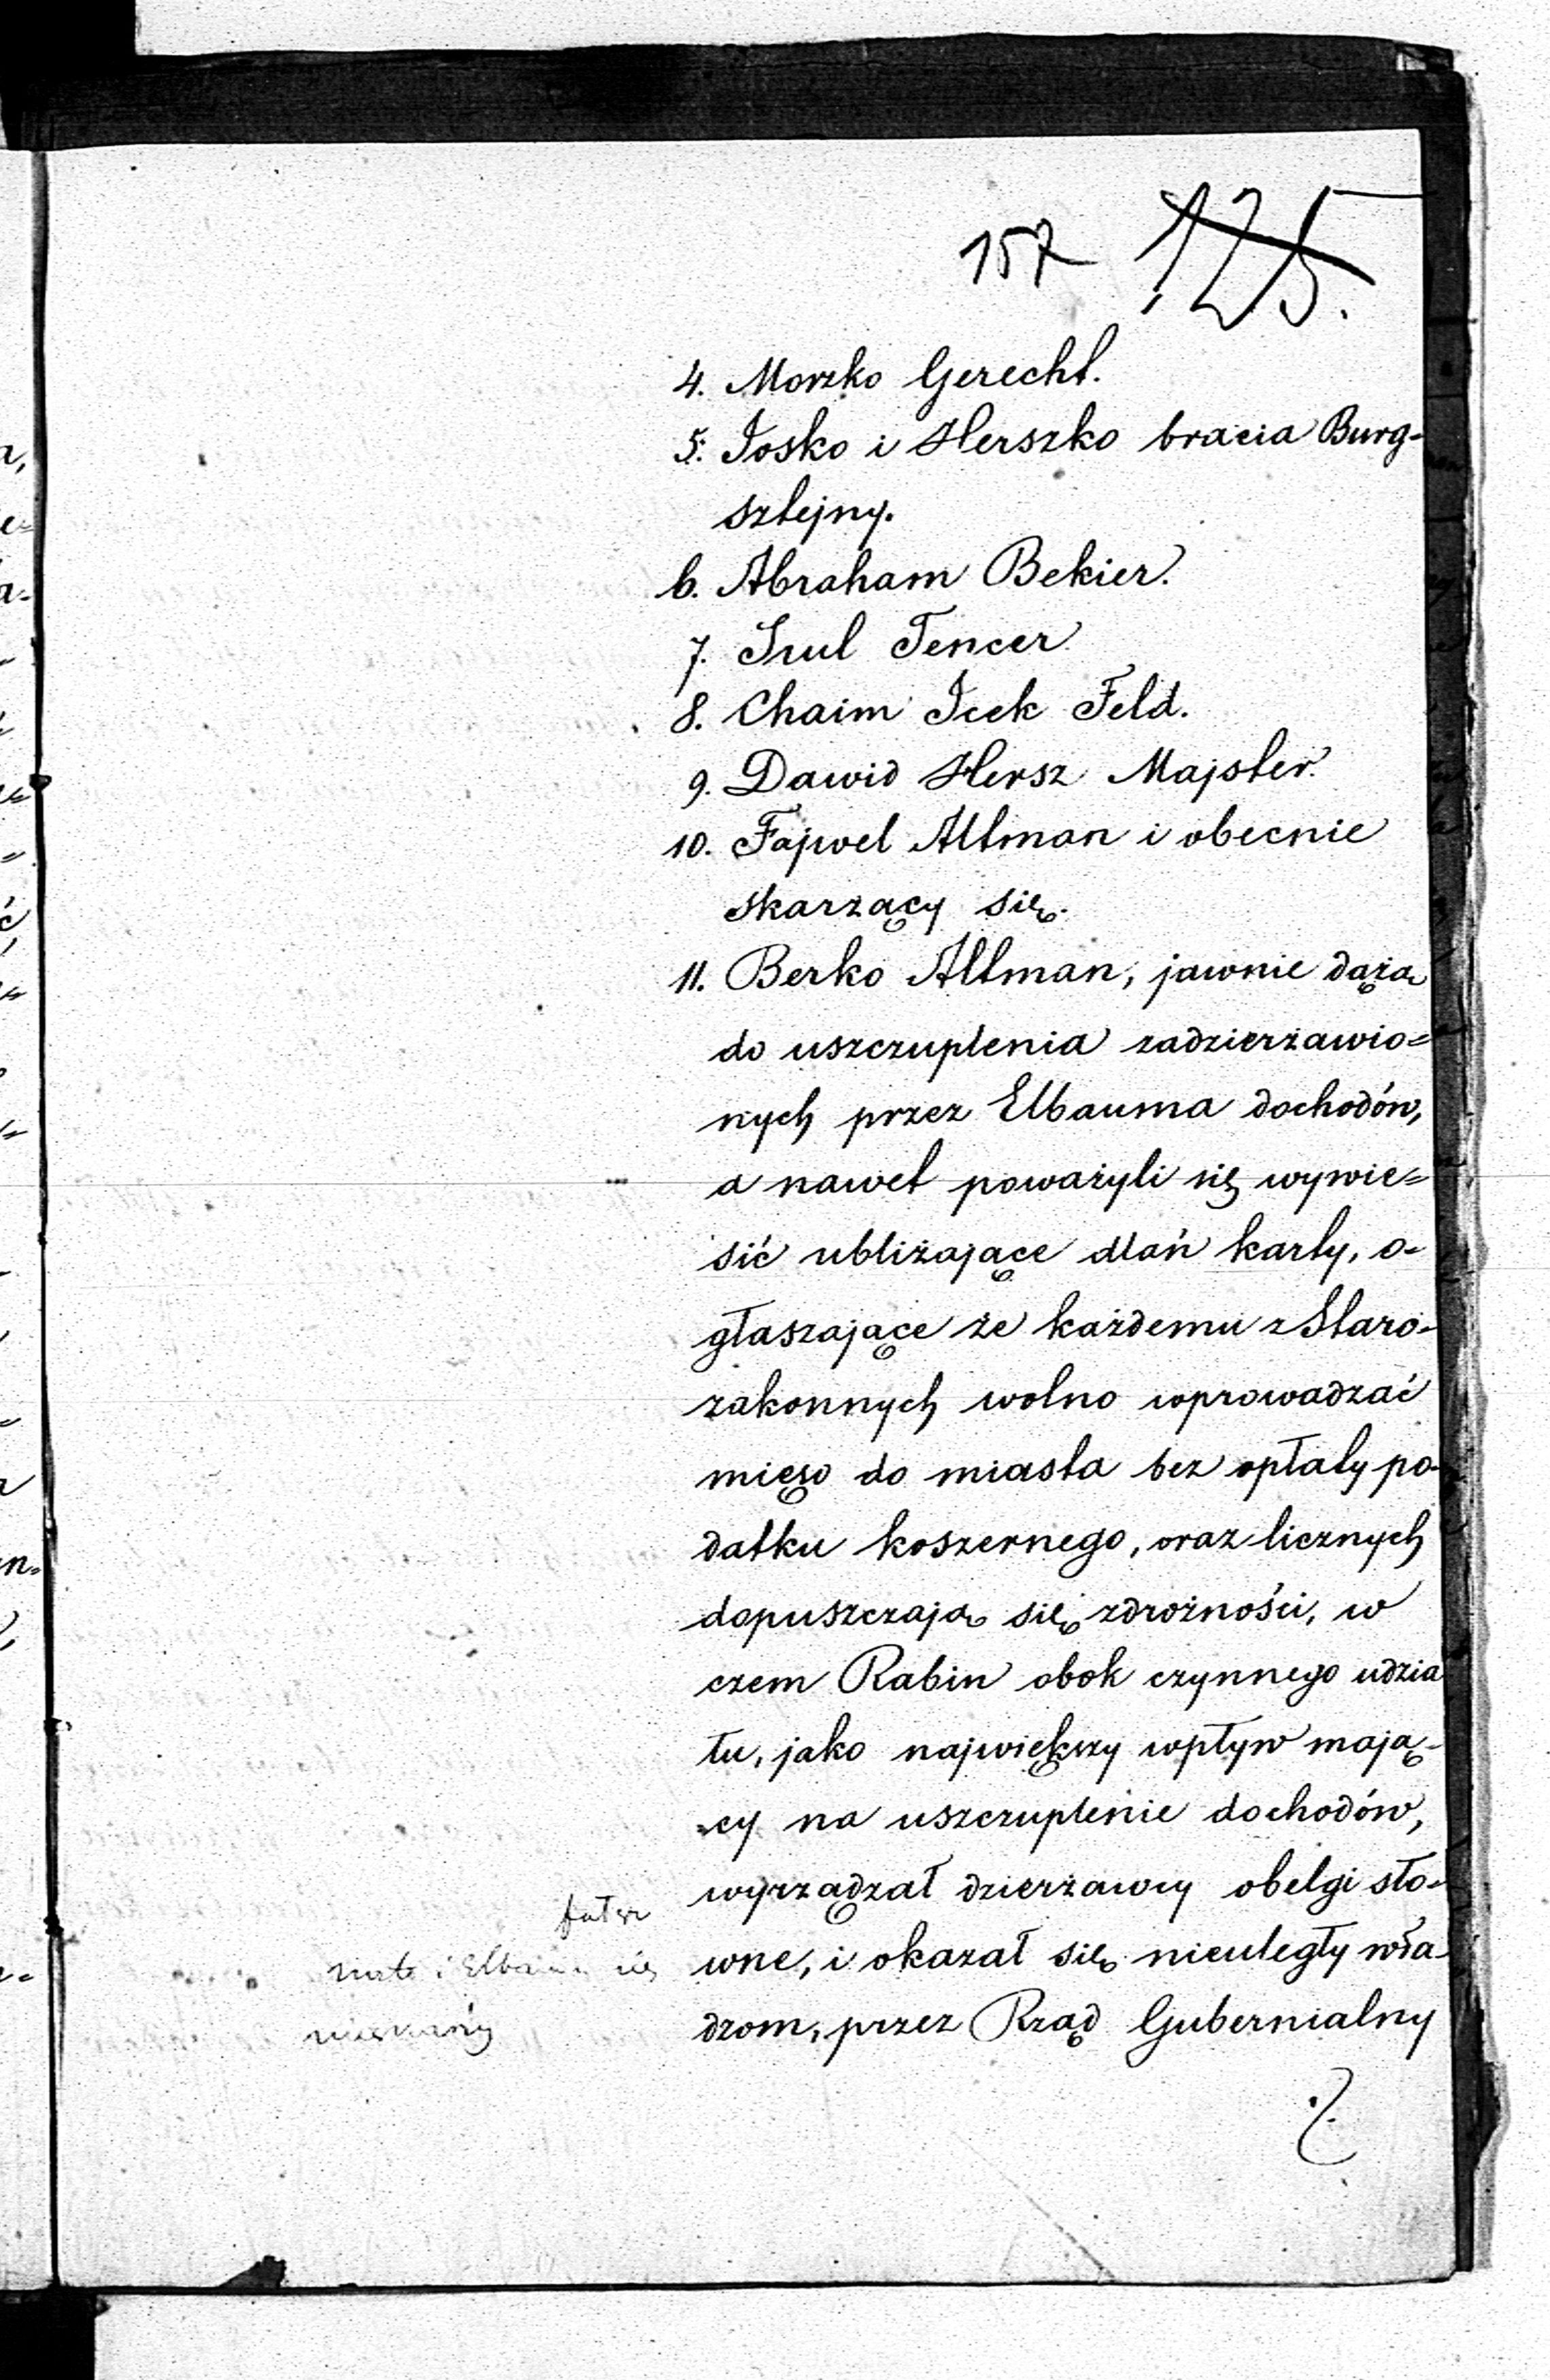 157 125.
4. Morzko Gerecht.
5. Josko i Herszko bracia Burg-
sztejny.
6. Abraham Bekier.
7. Srul Tencer.
8. Chaim Icek Feld.
9. Dawid Hersz Majster.
10. Fajwel Altman i obecnie
skarzący się.
11. Berko Altman, jawnie dążą
do uszczuplenia zadzierżawio=
nych przez Elbauma dochodów,
a nawet poważyli się wywie=
sić ubliżające dlań karty, o-
głaszające że każdemu z Staro-
zakonnych wolno wprowadzać
mięso do miasta bez opłaty po-
datku koszernego, oraz licznych
dopuszczają się zdrożności, w
czem Rabin obok czynnego udzia
łu, jako największy wpływ mają-
cy na uszczuplenie dochodów,
wyrządzał dzierżawcy obelgi sło-
wne, i okazał się nieuległy wła-
dzom, przez Rząd Gubernialny
i Elbauma się